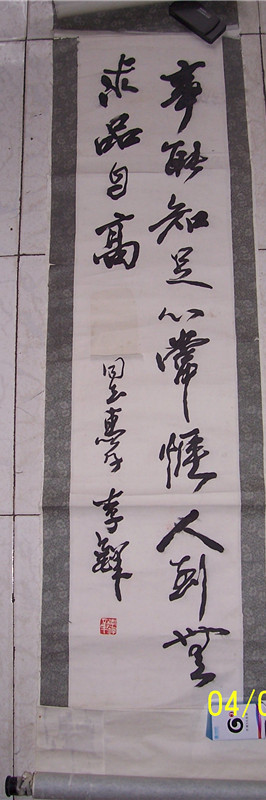 事能知足心常惬人到无
求品自高
同志惠存 李铎
04/0